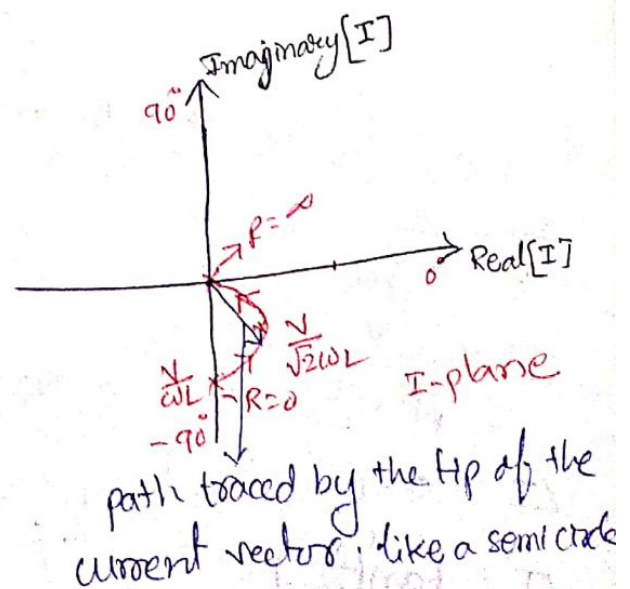 Imaginary[I]
90°
R=∞
Real[I]
0°
V/√2ωL
V/ωL
R=0
I-plane
-90°
path traced by the tip of the
current vector. like a semi circle